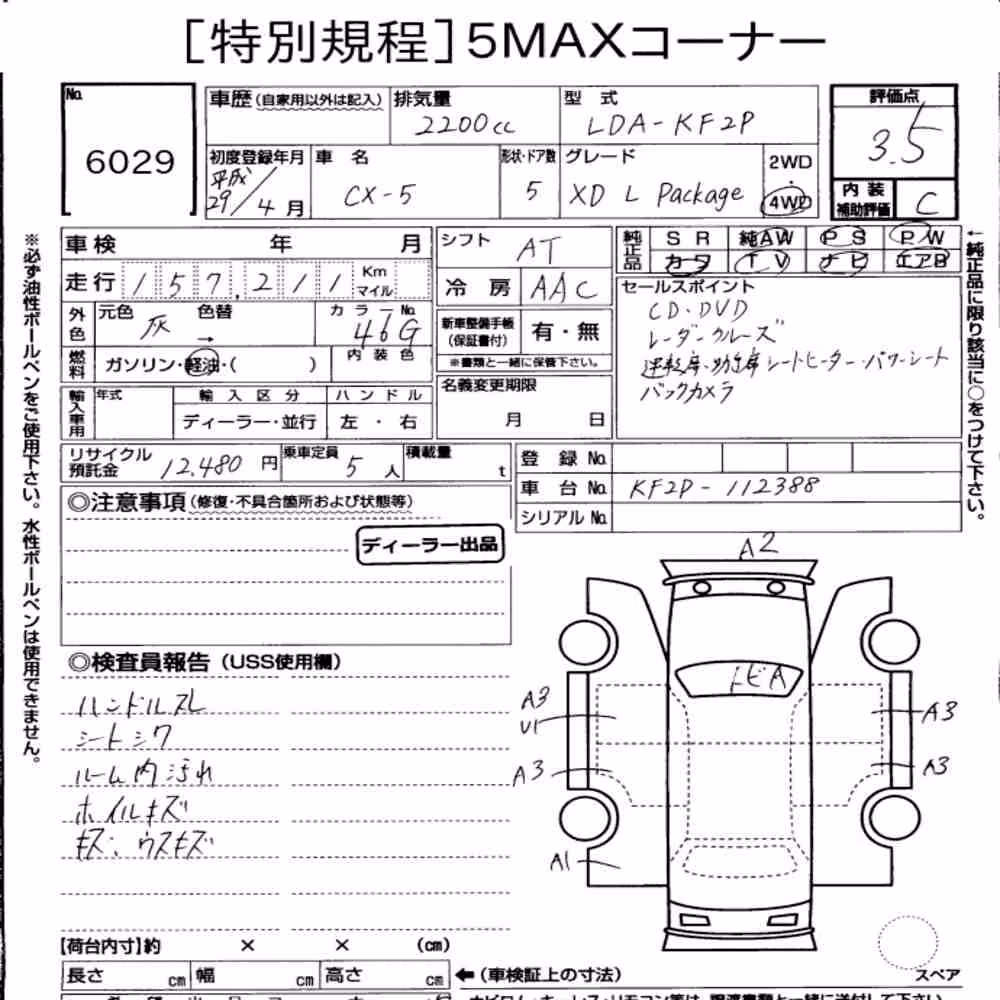 ［特別規程］5MAXコーナー
No. 6029
車歴（自家用以外は記入）
排気量 2200cc
型式 LDA-KF2P
評価点 3.5
初度登録年月 平成29/4月
車名 CX-5
形状・ドア数 5
グレード XD L Package
2WD・4WD
内装補助評価 C
車検 年 月
シフト AT
純正品 SR 純AW PS PW
カワ TV ナビ エアB
走行 157,211 Km マイル
冷房 AAC
セールスポイント
CD・DVD
レーダークルーズ
運転席・助手席シートヒーター・パワーシート
バックカメラ
外色 元色 灰 色替 →
カラーNo. 46G
新車整備手帳（保証書付） 有・無
※書類と一緒に保管下さい。
燃料 ガソリン・軽油・（ ）
内装色
名義変更期限 月 日
輸入車用 年式 輸入区分 ハンドル
ディーラー・並行 左・右
リサイクル預託金 12,480円
乗車定員 5人
積載量 t
登録No.
車台No. KF2P-112388
シリアルNo.
◎注意事項（修復・不具合箇所および状態等）
ディーラー出品
◎検査員報告（USS使用欄）
ハンドルスレ
シートシワ
ルーム内汚れ
ホイルキズ
キズ、ウスキズ
A2
トビA
A3
U1
A3
A3
A3
A1
スペア
【荷台内寸】約 × × （cm）
長さ cm 幅 cm 高さ cm
←（車検証上の寸法）
※必ず油性ボールペンをご使用下さい。水性ボールペンは使用できません。
←純正品に限り該当に○をつけて下さい。